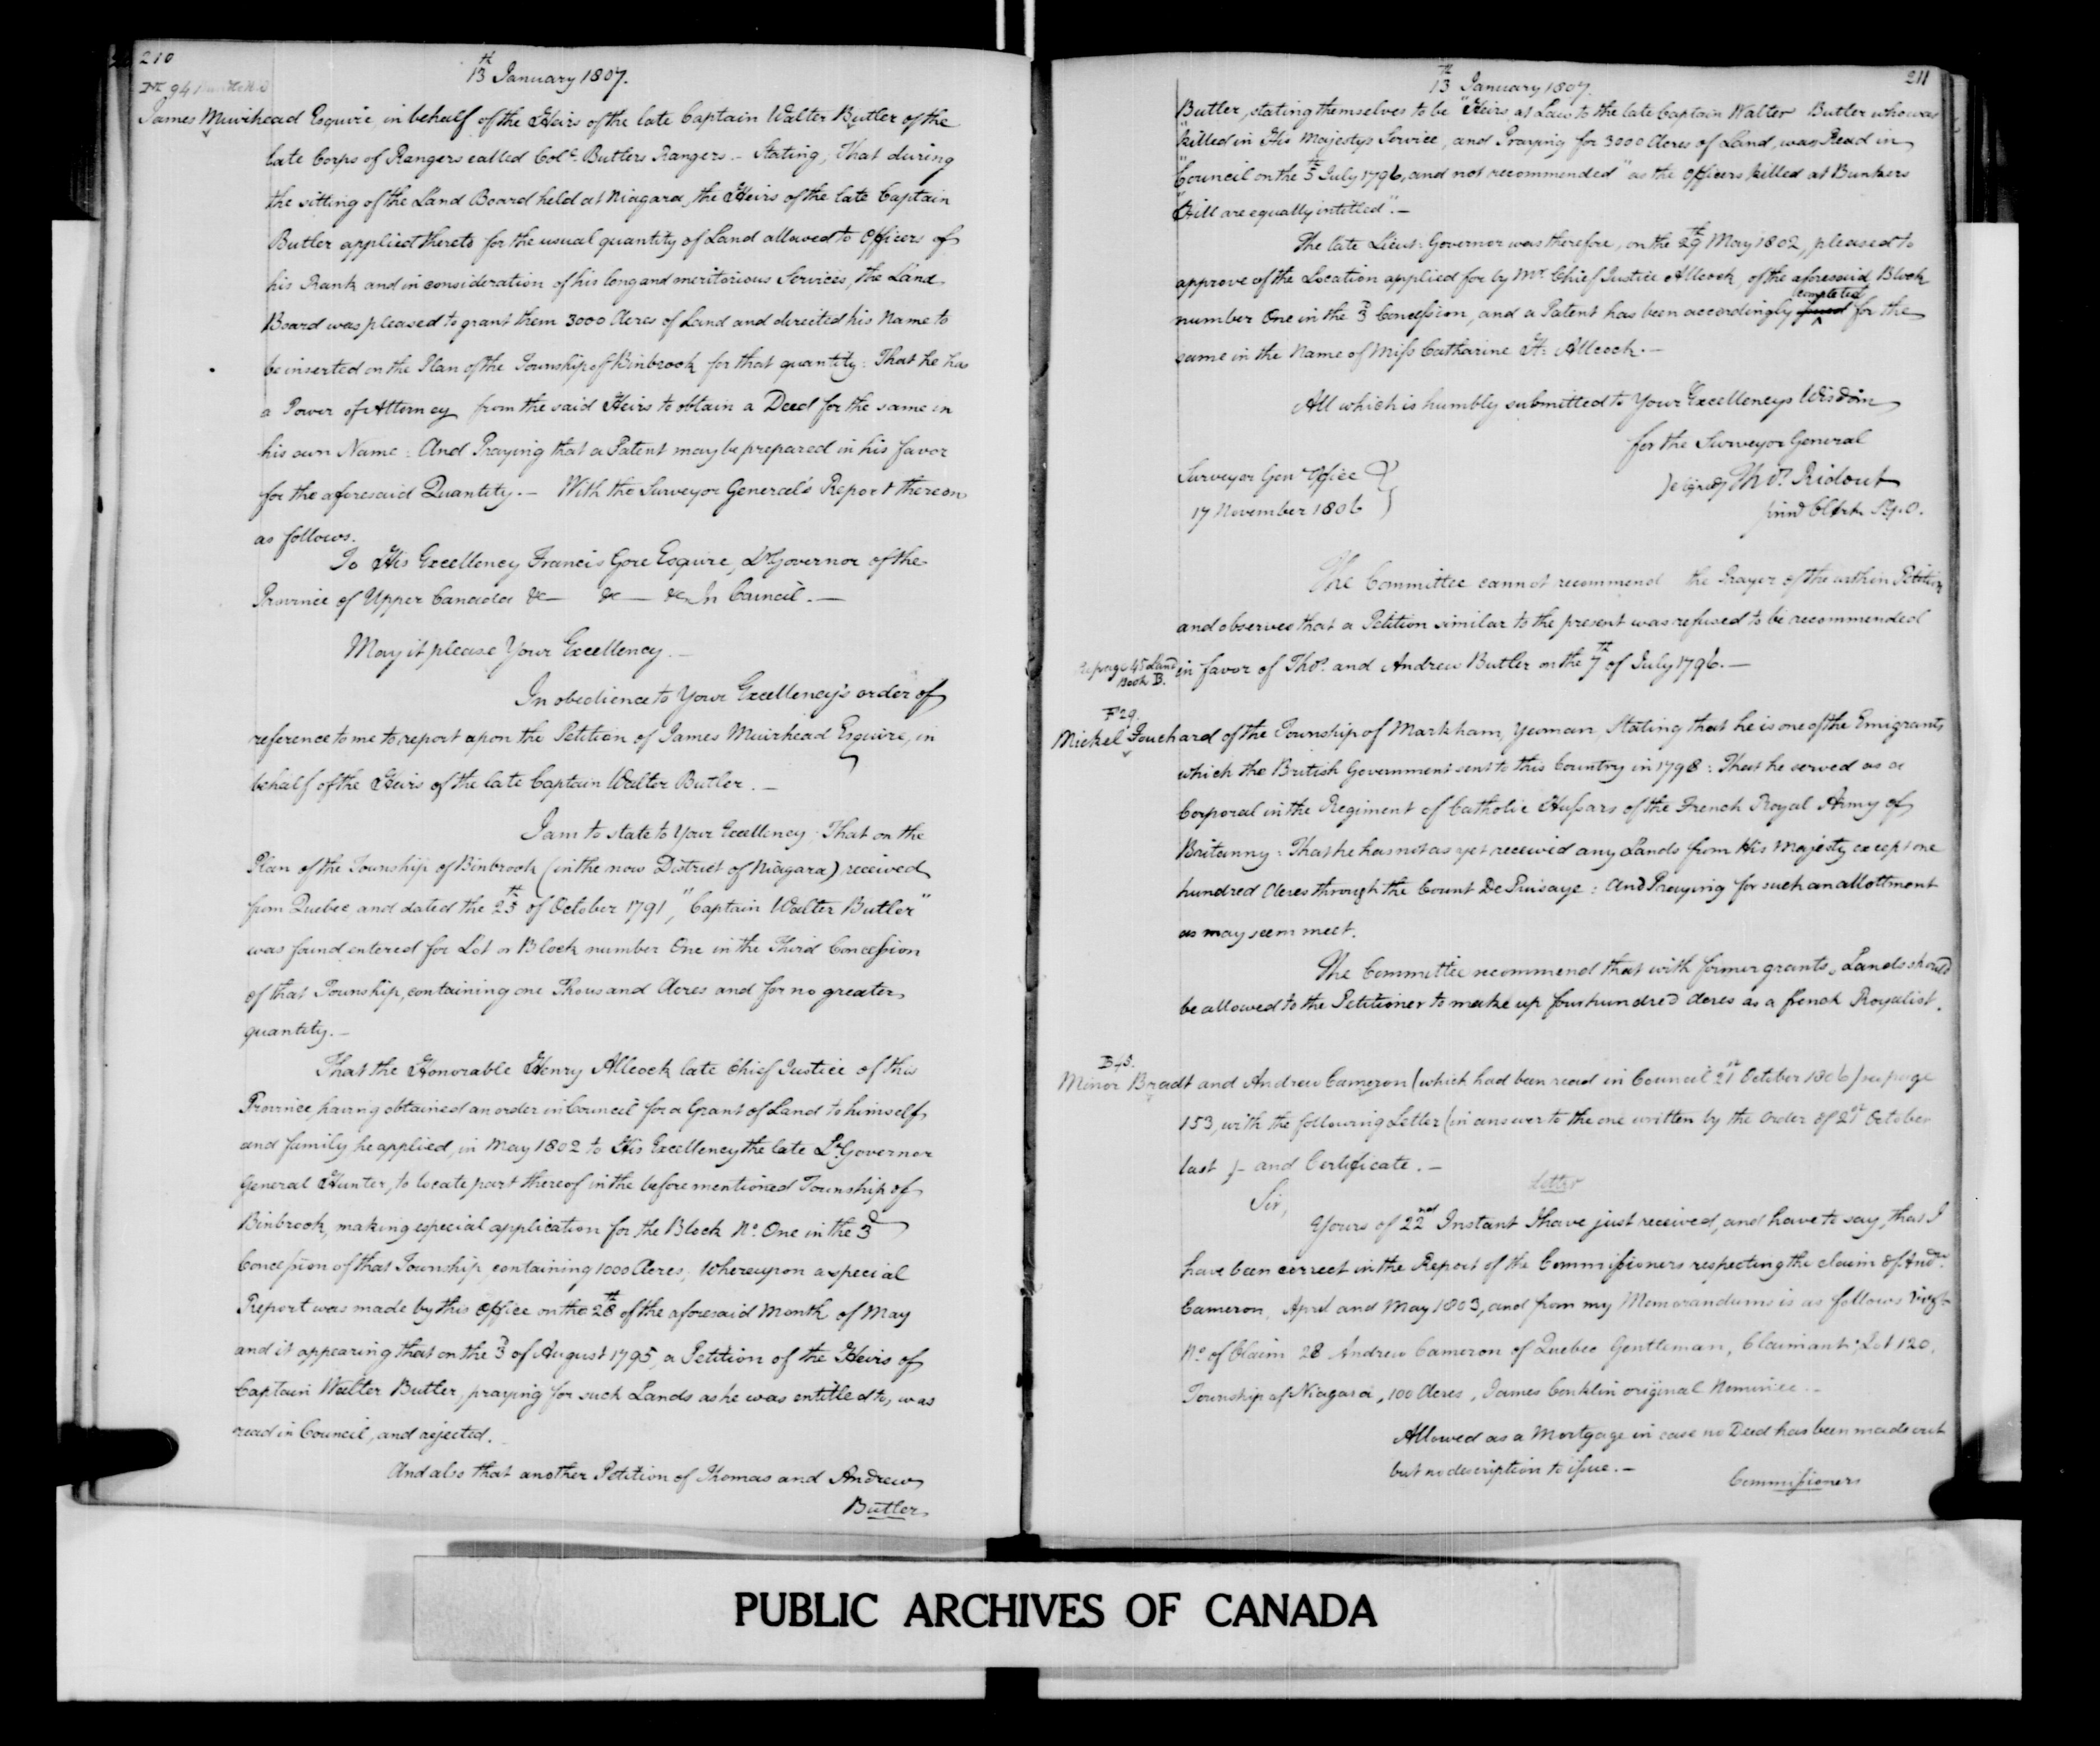 210
13th January 1807.
No 94
James Muirhead Esquire, in behalf of the Heirs of the late Captain Walter Butler of the
late Corps of Rangers called Colo. Butlers Rangers. – Stating, That during
the sitting of the Land Board held at Niagara, the Heirs of the late Captain
Butler applied thereto for the usual quantity of Land allowed to Officers of
his Rank and in consideration of his long and meritorious Services, the Land
Board was pleased to grant them 3000 Acres of Land and directed his Name to
be inserted on the Plan of the Township of Binbrook for that quantity: That he has
a Power of Attorney from the said Heirs to obtain a Deed for the same in
his own Name: And Praying that a Patent may be prepared in his favor
for the aforesaid Quantity. – With the Surveyor General's Report thereon
as follows.
To His Excellency Francis Gore Esquire, Lt Governor of the
Province of Upper Canada &c — &c — &c In Council. —
May it please Your Excellency. –
In obedience to Your Excellency's order of
reference to me to report upon the Petition of James Muirhead Esquire, in
behalf of the Heirs of the late Captain Walter Butler. –
I am to state to Your Excellency, That on the
Plan of the Township of Binbrook (in the now District of Niagara) received
from Quebec and dated the 25th of October 1791, "Captain Walter Butler"
was found entered for Lot or Block number One in the Third Concession
of that Township, containing one Thousand Acres and for no greater
quantity. –
That the Honorable Henry Allcock late Chief Justice of this
Province, having obtained an order in Council for a Grant of Land to himself
and family he applied, in May 1802 to His Excellency the late Lt Governor
General Hunter, to locate part thereof in the before mentioned Township of
Binbrook, making especial application for the Block No. One in the 3d
Concession of that Township containing 1000 Acres; Whereupon a special
Report was made by this Office on the 28th of the aforesaid Month of May
and it appearing that on the 3d of August 1795, a Petition of the Heirs of
Captain Walter Butler, praying for such Lands as he was entitled to, was
read in Council, and rejected. –
And also that another Petition of Thomas and Andrew
Butler
13th January 1807.
211
Butler, stating themselves to be "Heirs at Law to the late Captain Walter Butler who was
"killed in His Majestys Service, and Praying for 3000 Acres of Land, was Read in
"Council on the 5th July 1796, and not recommended" as the Officers killed at Bunkers
Hill are equally intitled". –
The late Lieut: Governor was therefore, on the 29th May 1802, pleased to
approve of the Location applied for by Mr. Chief Justice Allcock, of the aforesaid Block
completed
number One in the 3d Concession, and a Patent has been accordingly for the
same in the Name of Miss Catharine H: Allcock. –
All which is humbly submitted to Your Excellencys Wisdom
for the Surveyor General
Surveyor Genl Office
(signed) Thos. Ridout
17 November 1806
The Committee cannot recommend the Prayer of the within Petition
and observe that a Petition similar to the present was refused to be recommended
page 45 Land
Book B.
in favor of Thos. and Andrew Butler on the 7th of July 1796. –
F 29.
Michel Fouchard of the Township of Markham, Yeoman, Stating that he is one of the Emigrants
which the British Government sent to this Country in 1798: That he served as a
Corporal in the Regiment of Catholic Hussars of the French Royal Army of
Britanny: That he has not as yet received any Lands from His Majesty except one
hundred Acres through the Count De Puisaye: And Praying for such an allottment
as may seem meet.
The Committee recommend that with former grants, Lands should
be allowed to the Petitioner to make up four hundred Acres as a french Royalist.
B 48.
Minor Bradt and Andrew Cameron (which had been read in Council 21st October 1806) see page
153, with the following Letter (in answer to the one written by the Order of 21st October
last) – and Certificate. –
Letter
Sir,
Yours of 22nd Instant I have just received, and have to say, that I
have been correct in the Report of the Commissioners respecting the claim of Andw.
Cameron, April and May 1803, and from my Memorandums is as follows Vizt
No. of Claim 28 Andrew Cameron of Quebec Gentleman, Claimant; Lot 120.
Township of Niagara, 100 Acres, James Conklin original Nominee. –
Allowed as a Mortgage in case no Deed has been made out
but no description to issue. –
Commissioners
PUBLIC ARCHIVES OF CANADA